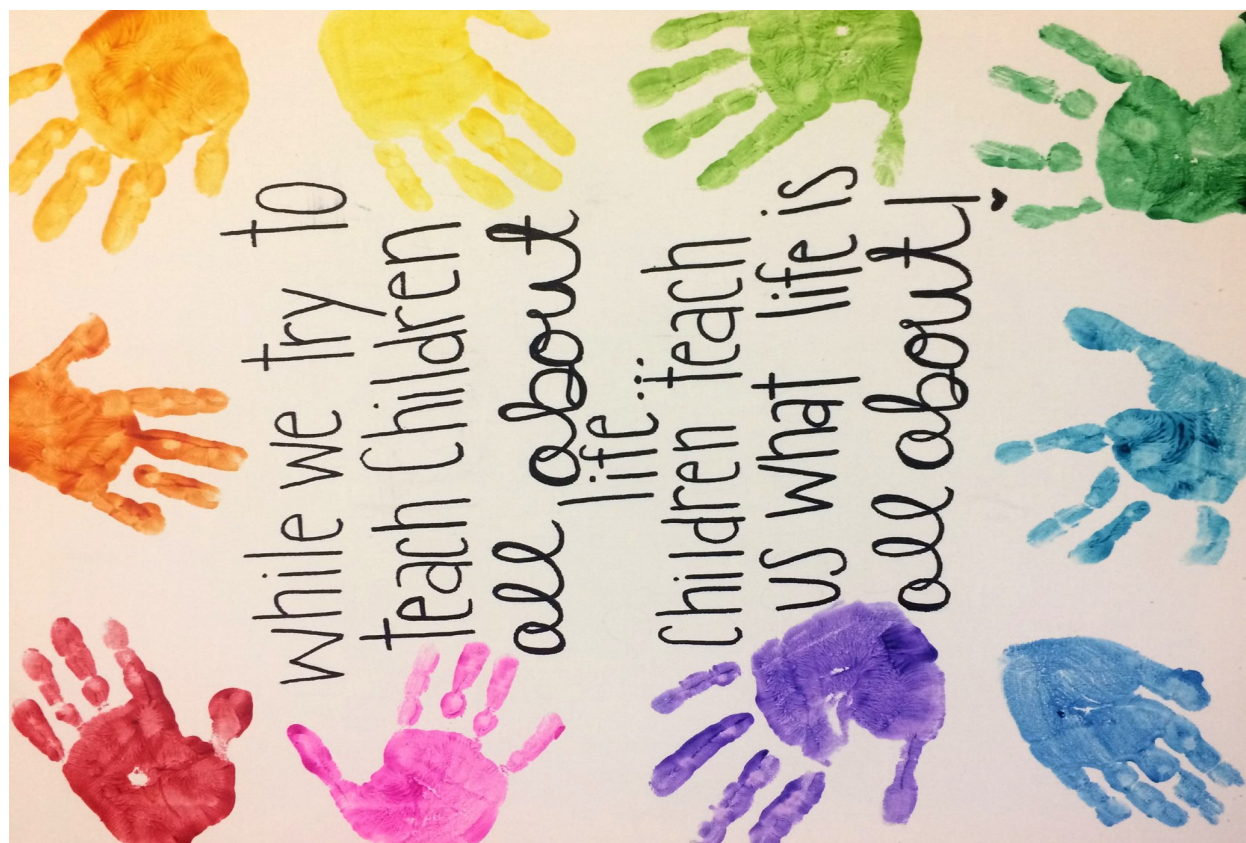 while we try to
teach children
all about
life...
Children teach
us what life is
all about!